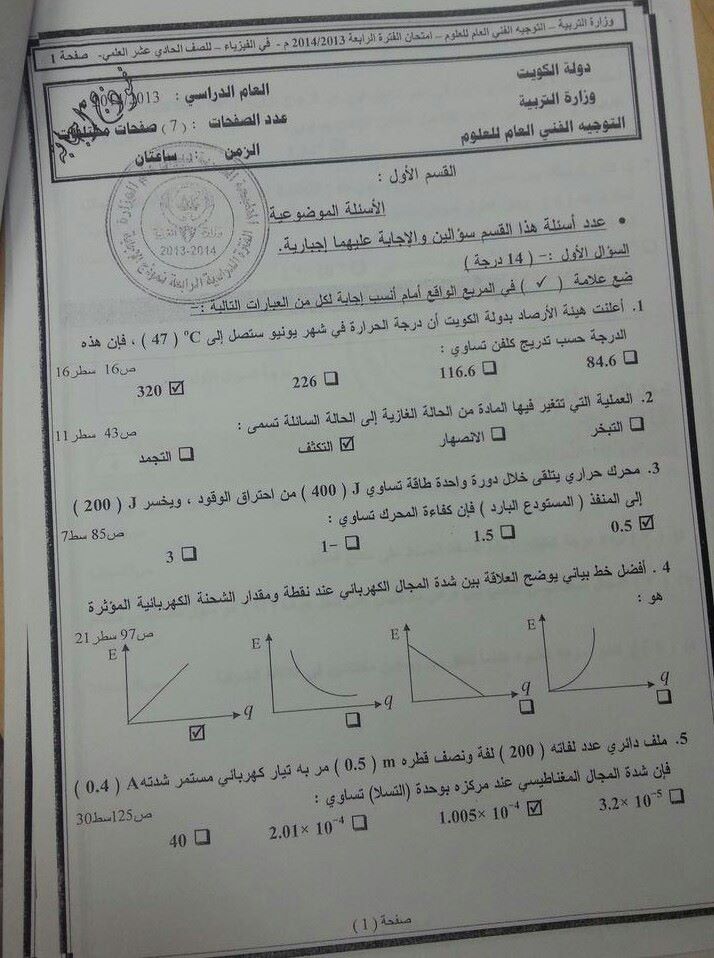 وزارة التربية – التوجيه الفني العام للعلوم – امتحان الفترة الرابعة 2014/2013 م - في الفيزياء – للصف الحادي عشر العلمي- صفحة 1
دولة الكويت
وزارة التربية
التوجيه الفني العام للعلوم
العام الدراسي : 2014/2013
عدد الصفحات : ( 7 ) صفحات مختلفات
الزمن : ساعتان
2013-2014
القسم الأول :
الأسئلة الموضوعية
• عدد أسئلة هذا القسم سؤالين والإجابة عليهما إجبارية.
السؤال الأول :– ( 14 درجة )
ضع علامة ( ✓ ) في المربع الواقع أمام أنسب إجابة لكل من العبارات التالية :–
1. أعلنت هيئة الأرصاد بدولة الكويت أن درجة الحرارة في شهر يونيو ستصل إلى ºC ( 47 ) ، فإن هذه
الدرجة حسب تدريج كلفن تساوي :
ص16 سطر16
☐ 84.6 ☐ 116.6 ☐ 226 ☑ 320
2. العملية التي تتغير فيها المادة من الحالة الغازية إلى الحالة السائلة تسمى :
ص43 سطر11
☐ التبخر ☐ الانصهار ☑ التكثف ☐ التجمد
3. محرك حراري يتلقى خلال دورة واحدة طاقة تساوي J ( 400 ) من احتراق الوقود ، ويخسر J ( 200 )
إلى المنفذ ( المستودع البارد ) فإن كفاءة المحرك تساوي :
ص85 سط7
☑ 0.5 ☐ 1.5 ☐ 1- ☐ 3
4 . أفضل خط بياني يوضح العلاقة بين شدة المجال الكهربائي عند نقطة ومقدار الشحنة الكهربائية المؤثرة
هو :
ص97 سطر21
E E E E
q q q q
5. ملف دائري عدد لفاته ( 200 ) لفة ونصف قطره m ( 0.5 ) مر به تيار كهربائي مستمر شدته A ( 0.4 )
فإن شدة المجال المغناطيسي عند مركزه بوحدة (التسلا) تساوي :
ص125سط30
☐ 3.2× 10⁻⁵ ☑ 1.005× 10⁻⁴ ☐ 2.01× 10⁻⁴ ☐ 40
صفحة ( 1 )